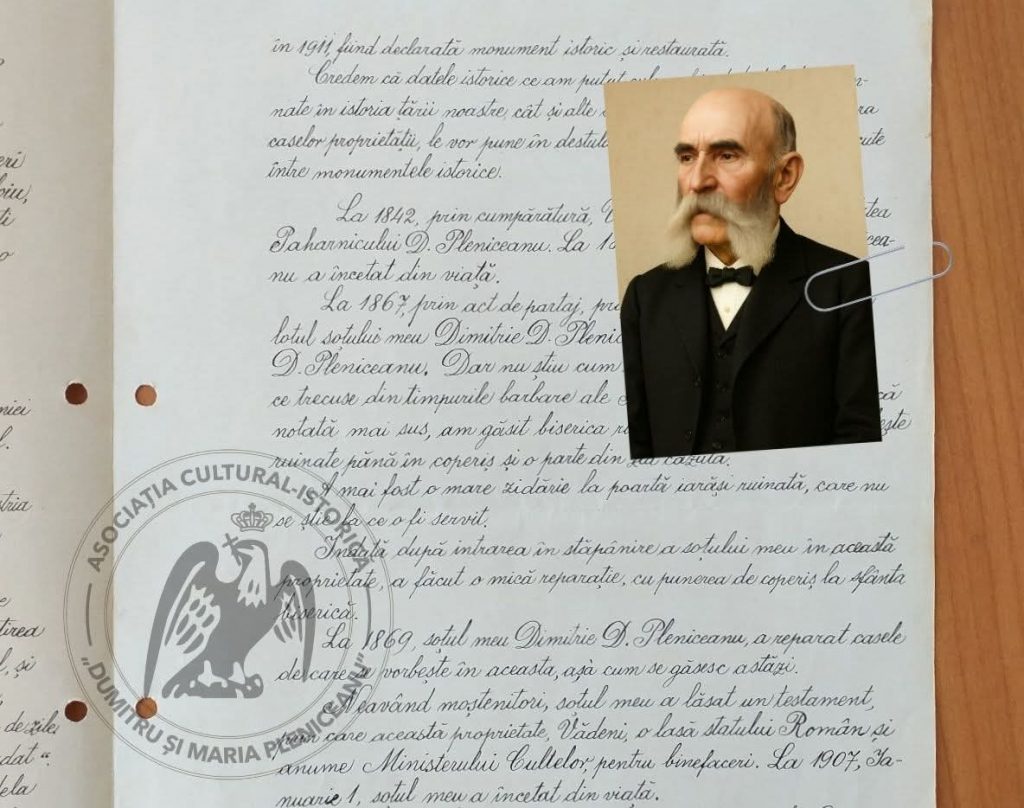 în 1911, fiind declarată monument istoric și restaurată.
Credem că datele istorice ce am putut
nate în istoria țării noastre, cât și alte
caselor proprietății, le vor pune în
între monumentele istorice.
La 1842, prin cumpărătură,
Paharnicului D. Pleniceanu. La
nu a încetat din viață.
La 1867, prin act de partaj,
lotul soțului meu Dimitrie D.
D. Pleniceanu. Dar nu știu cum
ce trecuse din timpurile barbare ale
notată mai sus, am găsit biserica
ruinate până în coperiș și o parte din căzută.
A mai fost o mare zidărie la poartă iarăși ruinată, care nu
se știe la ce o fi servit.
Îndată după intrarea în stăpânire a soțului meu în această
proprietate, a făcut o mică reparație, cu punerea de coperiș la sfânta
biserică.
La 1869, soțul meu Dimitrie D. Pleniceanu, a reparat casele
de care vorbește în aceasta, așà cum se găsesc astăzi.
Neavând moștenitori, soțul meu a lăsat un testament,
prin care această proprietate, Vădeni, o lasă statului Român și
anume Ministerului Cultelor, pentru binefaceri. La 1907, Ia-
nuarie 1, soțul meu a încetat din viață.
de zile
dela
ASOCIAȚIA CULTURAL-ISTORICĂ
„DUMITRU ȘI MARIA PLENICEANU"